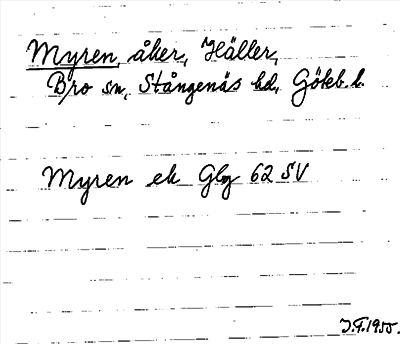 Myren, åker, Häller,
Bro sn, Stångenäs hd, Göteb. l.
Myren ek Gbg 62 SV
J.F. 1955.